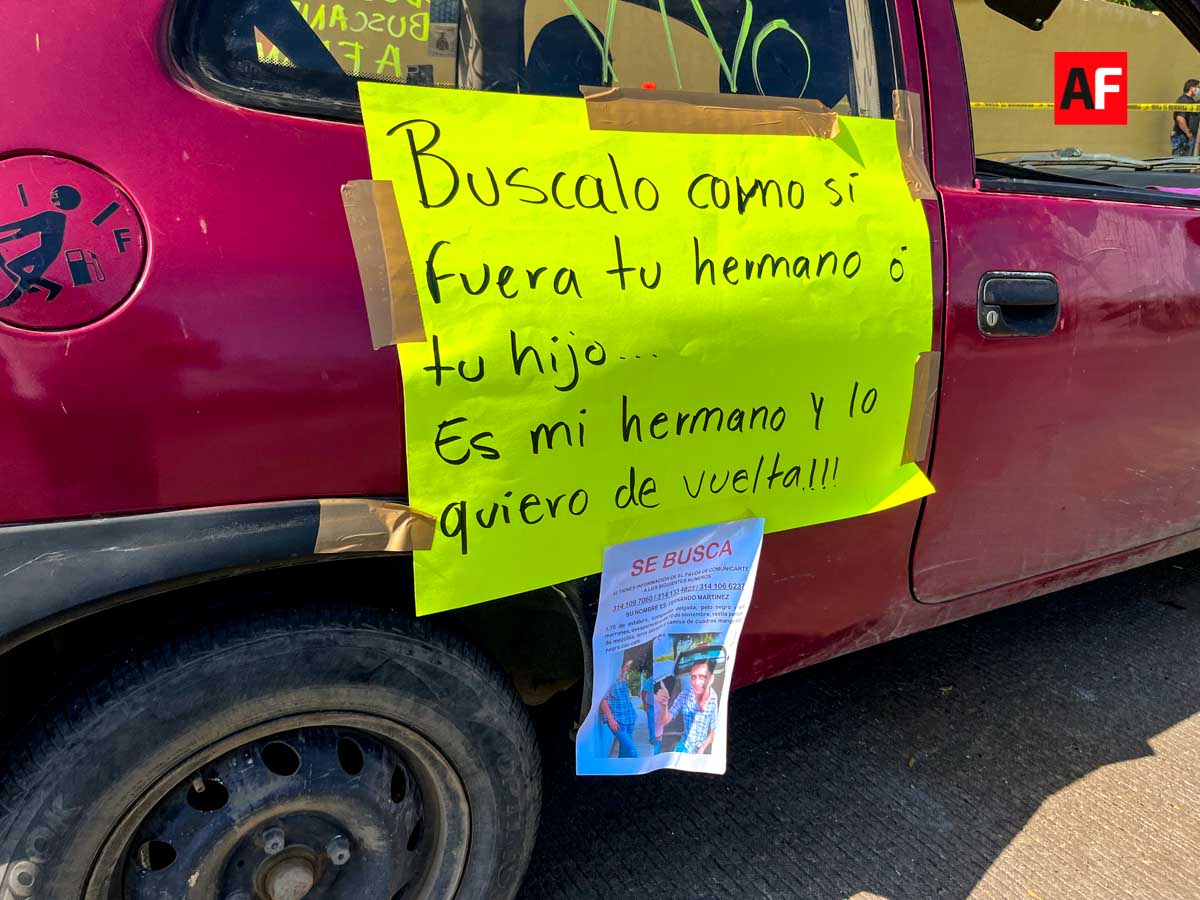 BUSCAN
A FER
VIVO
AF
F
Buscalo como si
fuera tu hermano ó
tu hijo...
Es mi hermano y lo
quiero de vuelta!!!
SE BUSCA
SI TIENES INFORMACIÓN DE EL FAVOR DE COMUNICARTE
A LOS SIGUIENTES NÚMEROS
314 109 7060 / 314 133 4827 / 314 106 6237
SU NOMBRE ES: FERNANDO MARTINEZ
1.70 de estatura, delgada, pelo negro
marrones, noviembre, vestía
de mezclilla, tenis camisa de cuadros
negro con